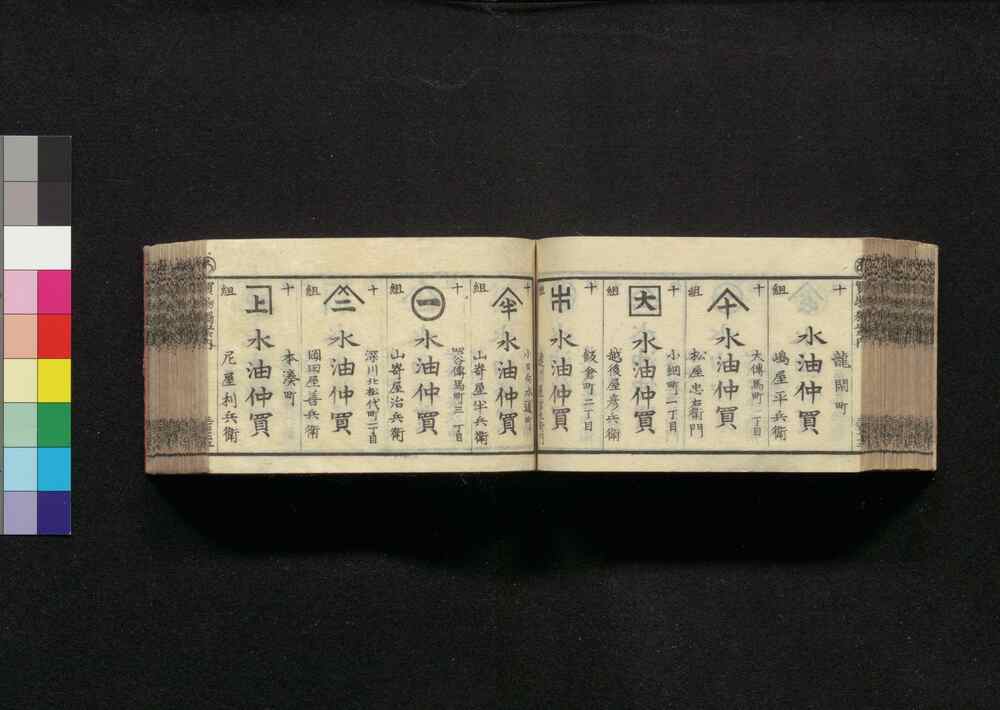 十
龍閑町
水油仲買
嶋屋平兵衛
十
大傳馬町一丁目
水油仲買
組
松屋忠右衛門
十
小網町一丁目
大
水油仲買
組
越後屋彦兵衛
十
飯倉町二丁目
水油仲買
組
十
水油仲買
組
山嵜屋半兵衛
十
四谷傳馬町三丁目
一
水油仲買
組
山嵜屋治兵衛
十
深川北松代町二丁目
二
水油仲買
組
岡田屋善兵衛
十
本湊町
上
水油仲買
組
尼屋利兵衛